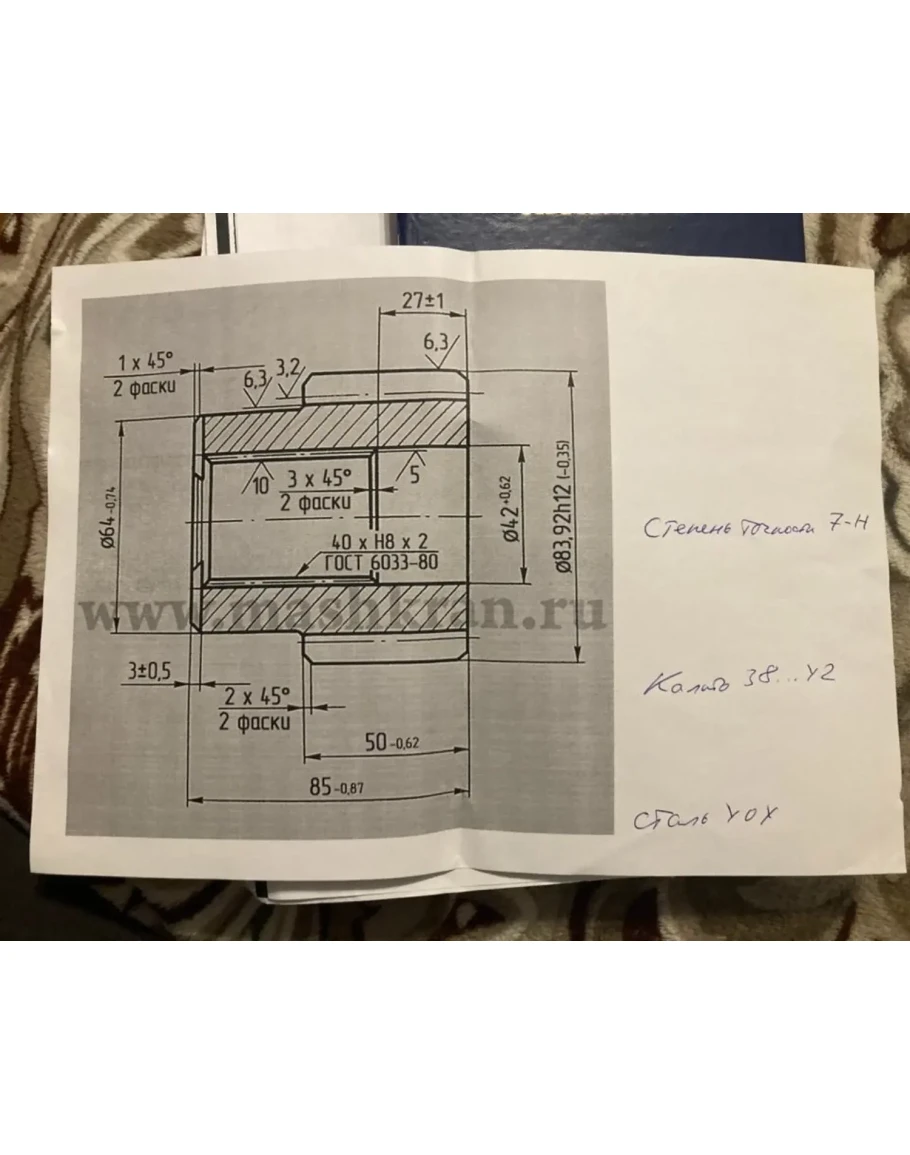 27±1
6,3
1 x 45°
2 фаски
6,3
3,2
10
3 x 45°
2 фаски
5
Ø64-0,74
Ø42+0,62
Ø83,92h12 (-0,35)
40 x H8 x 2
ГОСТ 6033-80
www.mashkran.ru
3±0,5
2 x 45°
2 фаски
50-0,62
85-0,87
Степень точности 7-Н
38...42
сталь 40Х